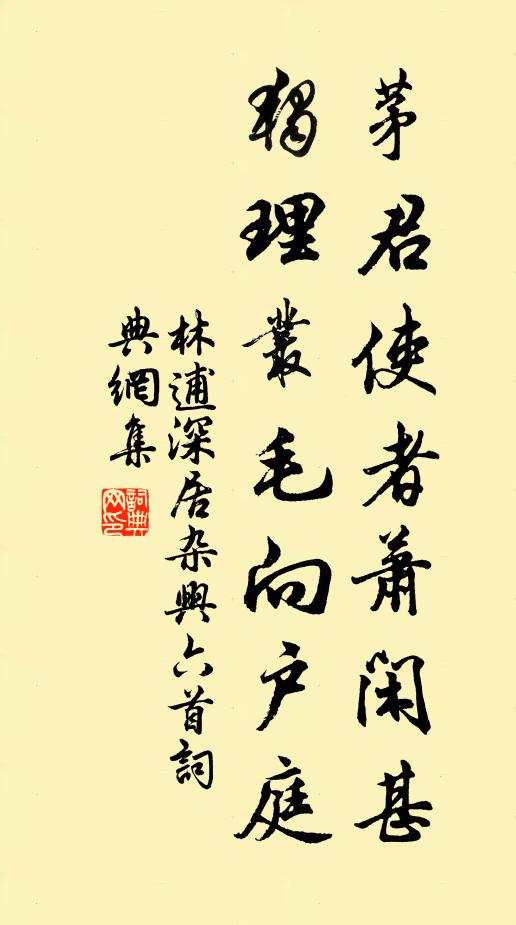 茅君使者萧闲甚
独理丛毛向户庭
林逋深居杂兴六首词
典网集
词典
网印